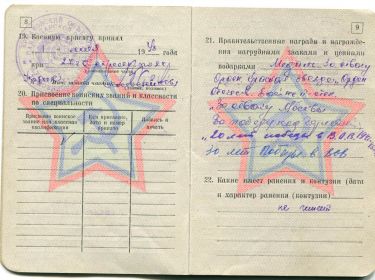 8
19. Военную присягу принял
мая 19 года
при
20. Присвоение воинских званий и классности
по специальности
Присвоено воинское
звание или классная
квалификация
Кем присвоено,
дата и номер
приказа
Подпись и
печать
9
21. Правительственные награды и награжде-
ния нагрудными знаками и ценными
подарками Медаль За отвагу
Орден Красной звезды, Орден
Отечеств. войны
За оборону Москвы
За победу над
"20 лет победы в В.О.В.
30 лет Победы в ВОВ
22. Какие имеет ранения и контузии (дата
и характер ранения (контузии)
не имеет